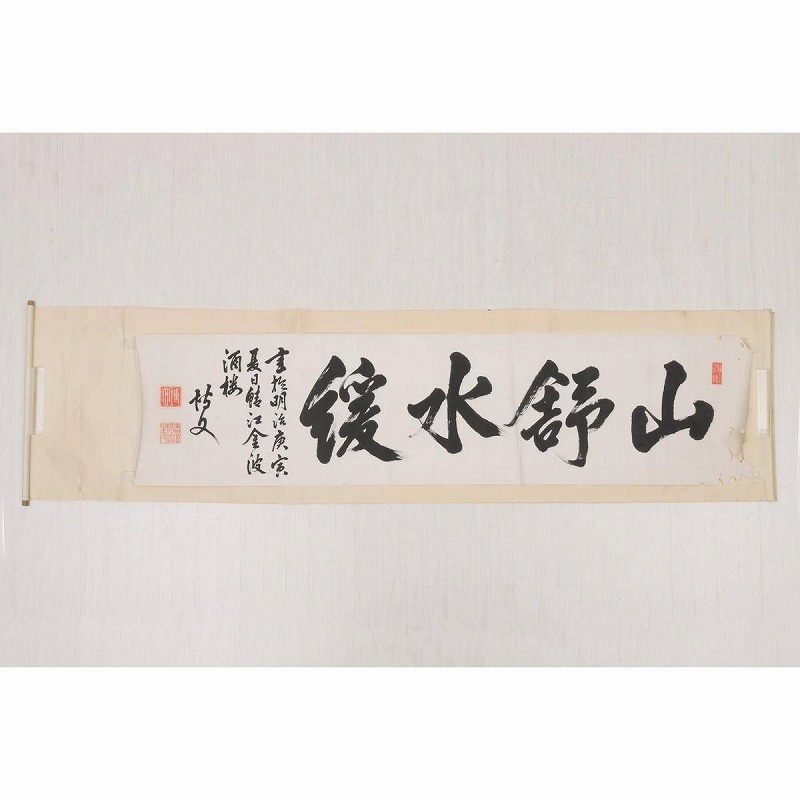 山舒水緩
書於明治庚寅
夏日鯖江金波
酒樓
博文